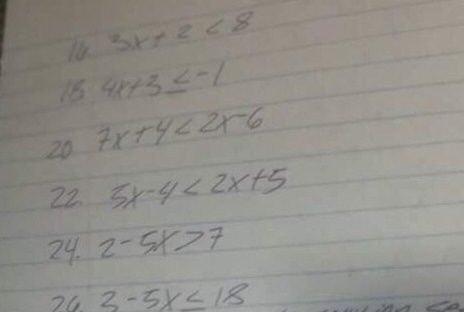 16 3x+2<8
18 4x+3≤-1
20 7x+4<2x-6
22. 5x-4<2x+5
24. 2-5x>7
26 3-5x≤18